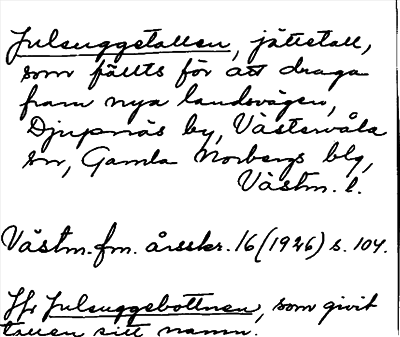 Julsuggetallen, jättetall,
som fällts för att draga
fram nya landsvägen,
Djupnäs by, Västervåla
sn, Gamla Norbergs blg,
Västm. l.
Västm. fm. årsskr. 16 (1926) s. 104.
Jfr Julsuggebottnen, som givit
truen sitt namn.